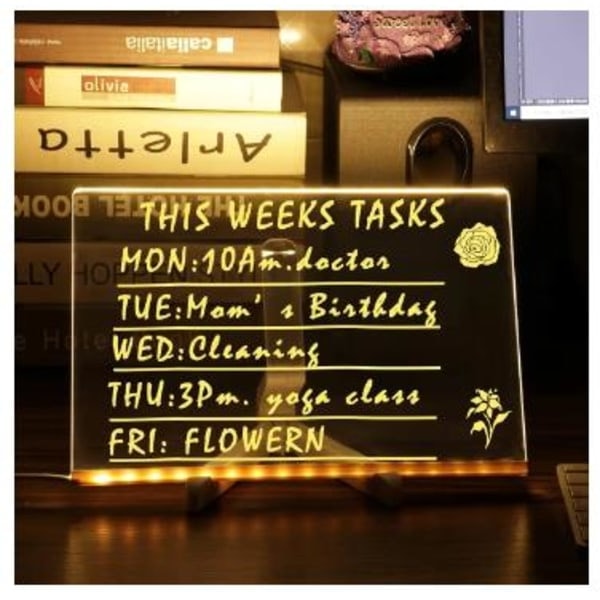 callaitalia
olivia
Arletta
THE HOTEL BOOK
LLY HOPPEN
e Hote
Sweet Lov
THIS WEEKS TASKS
MON:10Am.doctor
TUE:Mom's Birthday
WED:Cleaning
THU:3Pm. yoga class
FRI: FLOWERN